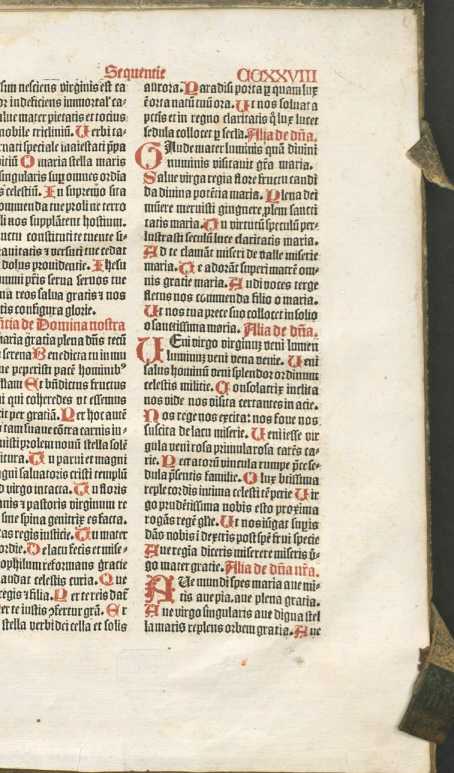 Sequentie CCXXVIII
sum nesciens virginis est ca
or indeficiens immortal' ca-
lue mater pietatis et rotius
nobile triclinium. Verbi ta-
maria stella maris
singularis sup omnes ordia
s celestiū. In supremo sita
ommenda tue proli ne terro
li nos supplātent hostium.
dolus prouidentie. Ihesu
ummi pris serua seruos tue
ria reos salua gratis et nos
tis configura glorie.
tia de Domina nostra
maria gratia plena dūs tecū
serena Benedicta tu in mu
ue peperisti pacē hominib9
flam Et bñdictus fructus
ui qui coheredes vt essemus
cit per gratiā. Per hoc autē
a tam suaue cōtra carnis iu-
nuisti prolem nouū stella solē
itura. Tu parui et magni
gni saluatoris cristi templū
d virgo intacta. Tu floris
sine spina genitrix es facta.
tas regis iusticie. Tu mater
ordie. De lacu fecis et mise-
heophilum reformans gratie
audat celestis curia. Que
regis et filia. Per te reis dat
er te iustis cōfertur grā. Et
stella verbi dei cella et solis
aurora. Paradisi porta p quam lux
ē orta natū tuū ora. Ut nos soluat a
pctis et in regno claritatis q̄ lux lucet
sedula collocet p secla. Alia de dña.
Gaude mater luminis quā diuini
numinis visitauit grā maria.
Salue virga regia flore fructu candi
da diuina potētia maria. Plena dei
mūere meruisti gingnere plem sancti
tatis maria. Tu virtutū speculū per-
lustrasti seculū luce claritatis maria.
Ad te clamāt miseri de valle miserie
maria. Te adorāt superi matrē om-
nis gratie maria. Audi voces terge
fletus nos cōmenda filio o maria.
Ut nos tua prece suo collocet in solio
o sanctissima maria. Alia de dña.
Veni virgo virginum veni lumen
luminum veni vena venie. Veni
salus hominū veni splendor ordinum
celestis militie. Consolatrix inclita
nos vide nos visita certantes in acie.
Nos rege nos excita: nos foue nos
suscita de lacu miserie. Veni iesse vir
gula veni rosa primula rosa carēs ca-
rie. Peccatorū vincula rumpe p̄ce se-
dula p̄sentis familie. O lux btissima
reple cordis intima celesti tēperie. Vir
go prudētissima nobis esto proxima
rogās regē glie. Ut nos iūgat suppis
dās nobis i dextris post spē frui specie
Aue regia diceris miserere miseris v̄-
go mater gratie. Alia de dña nr̄a.
Aue mundi spes maria aue mi-
tis aue pia. aue plena gratia.
Aue virgo singularis aue digna stel
la maris replens orbem gratia. Aue